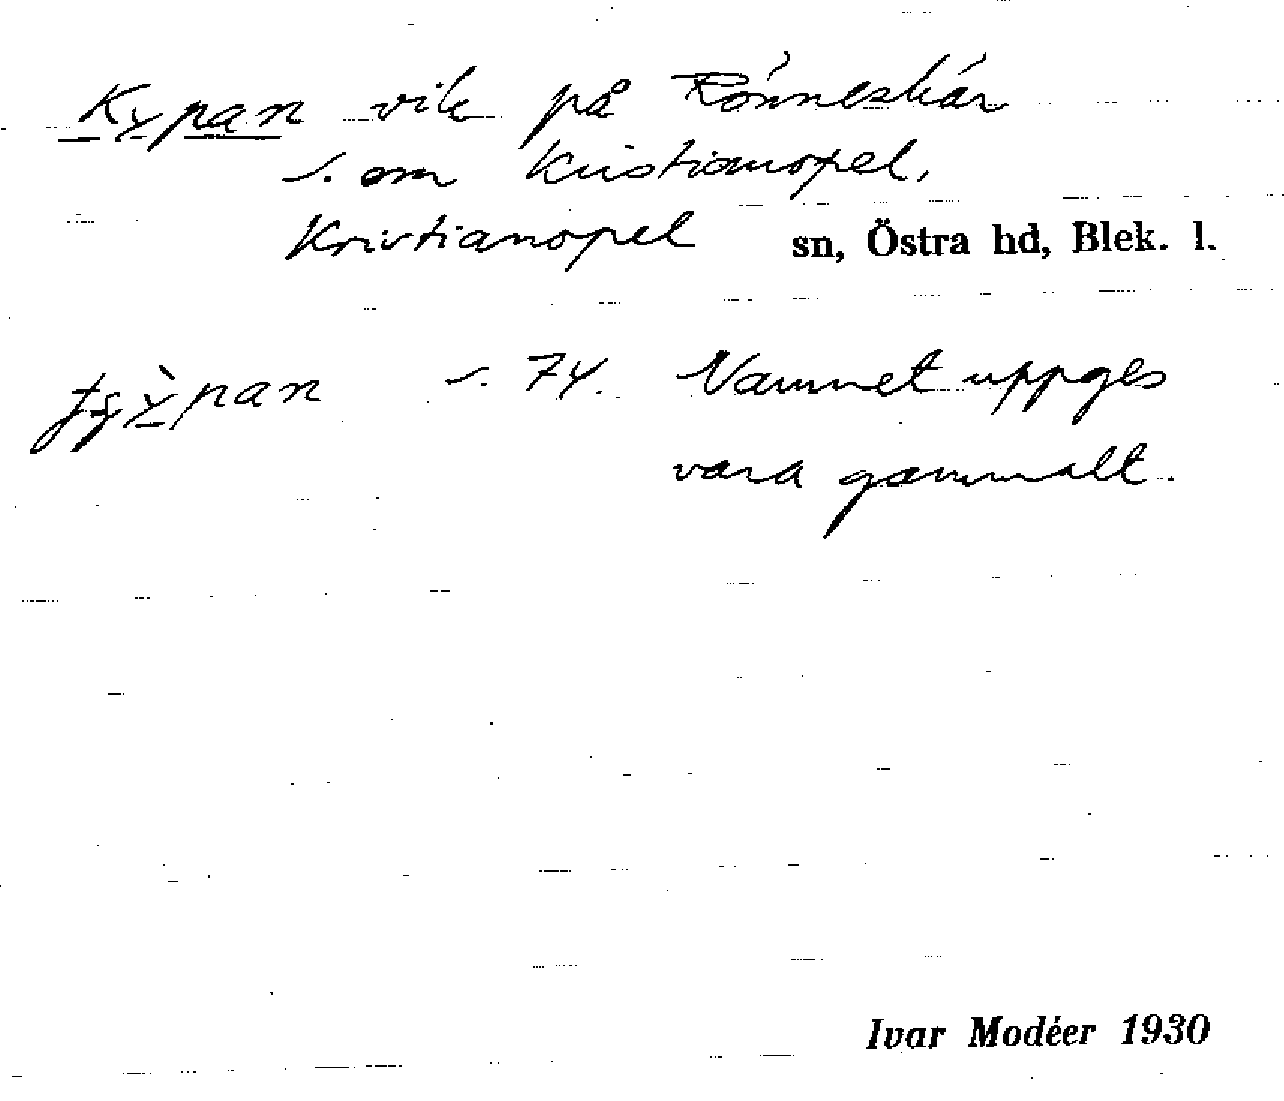 Kypan vik på Rönneskär
s. om Kristianopel,
Kristianopel sn, Östra hd, Blek. l.
s. 74. Namnet uppges
vara gammalt.
Ivar Modéer 1930